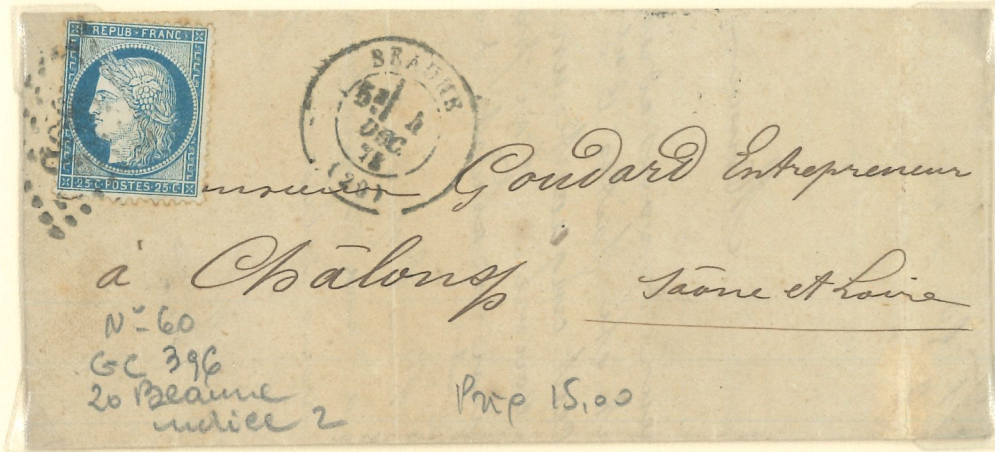 REPUB·FRANC
25 C·POSTES·25 C
BEAUNE
5E
4
DEC.
75
(20)
Monsieur Goudard Entrepreneur
à Châlons s/
Sâone et Loire
N° 60
GC 396
20 Beaune
indice 2
Prip 15,00